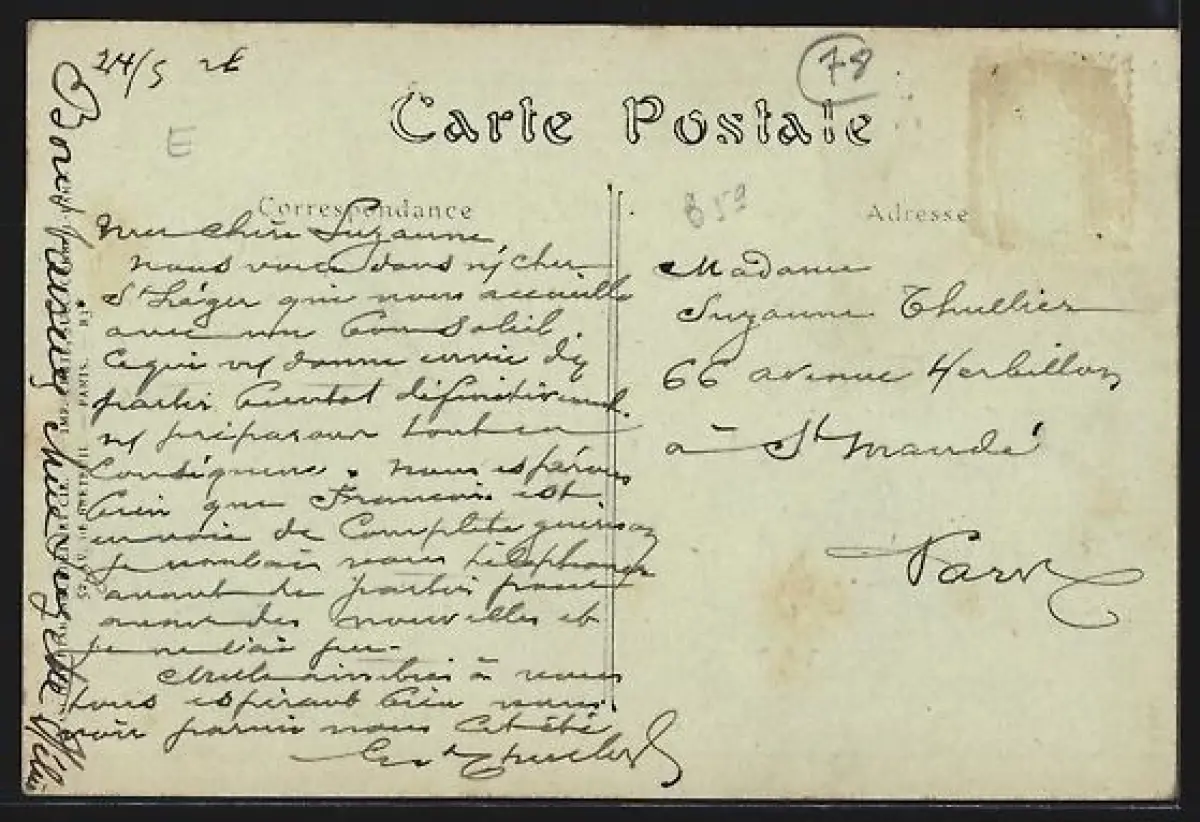 24/5 26
78
E
Carte Postale
Correspondance
859
Adresse
Ma chère Suzanne
nous voici dans n/ cher
St Léger qui nous accueille
avec un bon soleil.
Ce qui ns donne envie d'y
partir bientot définitivement.
ns préparons tout en
conséquence. nous espérons
bien que François est
en voie de complète guérison
je voulais vous téléphoner
avant de partir pour
avoir des nouvelles et
je ne l'ai pu.
Mille amitiés à vous
tous espérant bien vous
voir parmi nous cet été
Madame
Suzanne Thullier
66 avenue Herbillon
à St Mandé
Paris
Bons baisers chère
PARIS.